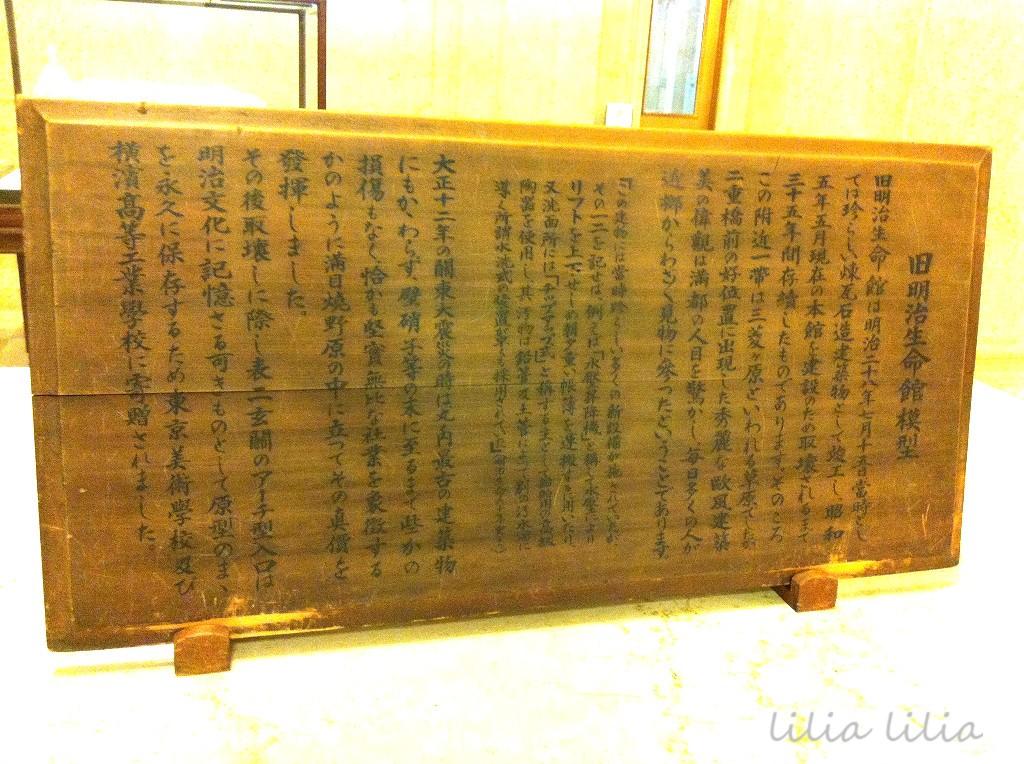 旧明治生命館模型
旧明治生命館は明治二十八年七月十五日當時とし
ては珍らしい煉瓦石造建築物として竣工し、昭和
五年五月現在の本館を建設のため取壊されるまで
三十五年間存續したものであります。そのころ
この附近一帯は三菱ヶ原といわれる草原でしたが
二重橋前の好位置に出現した秀麗な歐風建築
美の偉觀は満都の人目を驚かし、毎日多くの人が
近郷からわざ〱見物に参ったということであります。
この建物には當時珍らしい多くの新設備が施されていたが、
その一二を記せば、例えば「水壓昇降機」と稱して水壓により
リフトを上下せしめ類多重い帳簿を運搬するに用いたり、
又洗面所には
陶器を使用し其汚物は鉛管及土管によって
導く所謂水洗式の
大正十二年の關東大震災の時は丸ノ内最古の建築物
にもかゝわらず壁硝子等の末に至るまで些かの
損傷もなく恰かも堅實無比な社業を象徴する
かのように満目焼野原の中に立ってその真價を
發揮しました。
その後取壊しに際し表二玄關のアーチ型入口は
明治文化に記憶さる可きものとして原型のまゝ
を永久に保存するため東京美術學校及び
横濱高等工業學校に寄贈されました。
lilia lilia